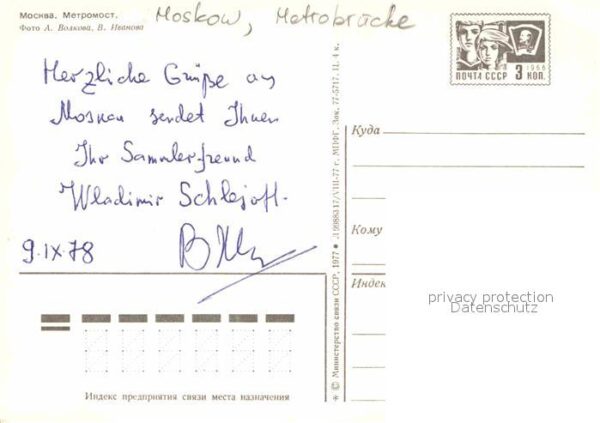 Москва. Метромост.
Фото А. Волкова, В. Иванова
Moskow, Metrobrücke
ПОЧТА СССР 3 КОП.
1966
Herzliche Grüße aus
Moskau sendet Ihnen
Ihr Sammlerfreund
Wladimir
9.IX.78
Куда
Кому
Индекс
privacy protection
Datenschutz
Индекс предприятия связи места назначения
* © Министерство связи СССР, 1977 *
МПФГ. Зак. 77-5717. Ц. 4 к.